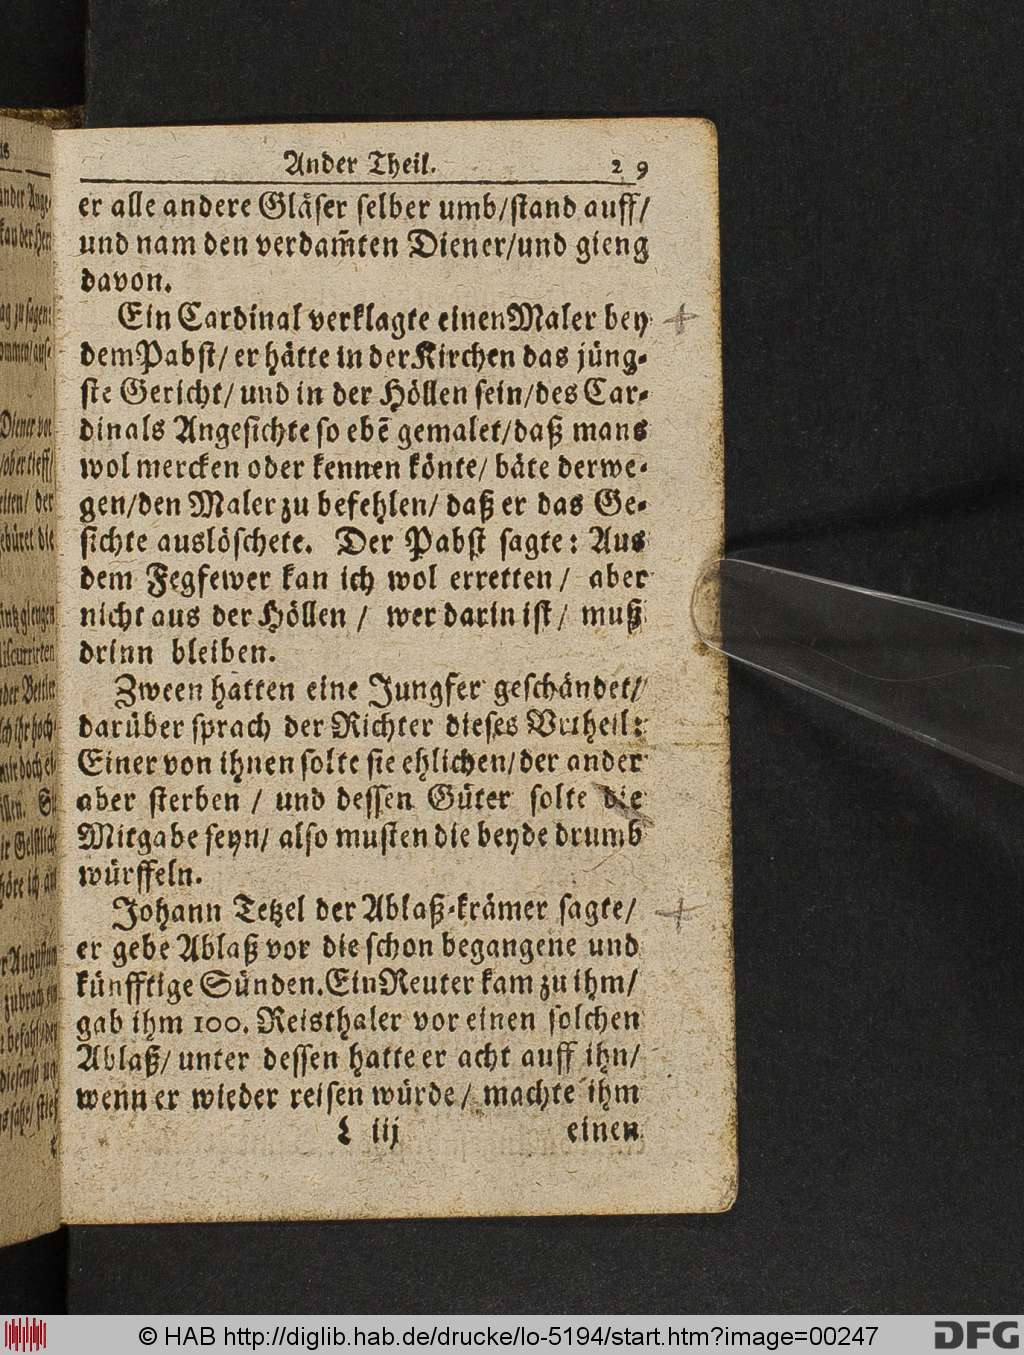 Ander Theil. 29
er alle andere Gläser selber umb/stand auff/
und nam den verdam̃ten Diener/und gieng
davon.
Ein Cardinal verklagte einen Maler bey
dem Pabst/ er hätte in der Kirchen das jüng-
ste Gericht/ und in der Höllen sein/des Car-
dinals Angesichte so ebẽ gemalet/daß mans
wol mercken oder kennen könte/ bäte derwe-
gen/den Maler zu befehlen/ daß er das Ge-
sichte auslöschete. Der Pabst sagte: Aus
dem Fegfewer kan ich wol erretten/ aber
nicht aus der Höllen / wer darin ist/ muß
drinn bleiben.
Zween hatten eine Jungfer geschändet/
darüber sprach der Richter dieses Vrtheil:
Einer von ihnen solte sie ehlichen/der ander
aber sterben / und dessen Güter solte die
Mitgabe seyn/ also musten die beyde drumb
würffeln.
Johann Tetzel der Ablaß-krämer sagte/
er gebe Ablaß vor die schon begangene und
künfftige Sünden. Ein Reuter kam zu ihm/
gab ihm 100. Reisthaler vor einen solchen
Ablaß/ unter dessen hatte er acht auff ihn/
wenn er wieder reisen würde/ machte ihm
L iij einen
© HAB http://diglib.hab.de/drucke/lo-5194/start.htm?image=00247
DFG